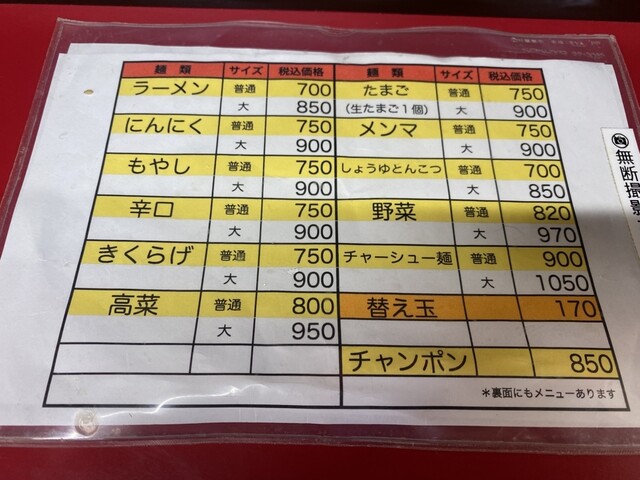 麺類 サイズ 税込価格
ラーメン 普通 700
大 850
にんにく 普通 750
大 900
もやし 普通 750
大 900
辛口 普通 750
大 900
きくらげ 普通 750
大 900
高菜 普通 800
大 950
麺類 サイズ 税込価格
たまご 普通 750
(生たまご1個) 大 900
メンマ 普通 750
大 900
しょうゆとんこつ 普通 700
大 850
野菜 普通 820
大 970
チャーシュー麺 普通 900
大 1050
替え玉 170
チャンポン 850
*裏面にもメニューあります
無断撮影